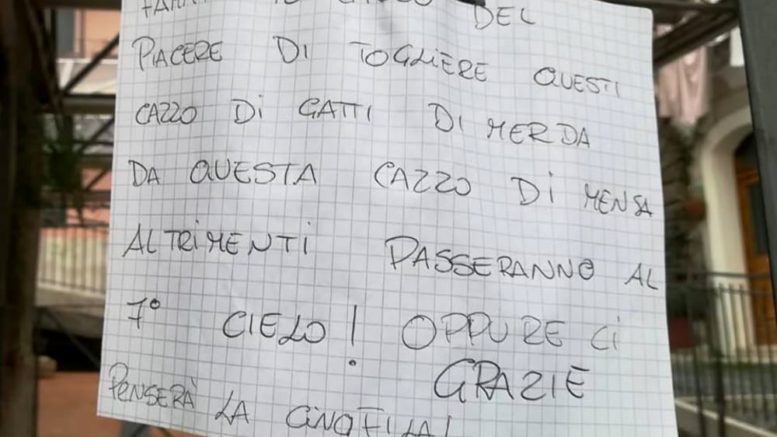 DEL
PIACERE DI TOGLIERE QUESTI
CAZZO DI GATTI DI MERDA
DA QUESTA CAZZO DI MENSA
ALTRIMENTI PASSERANNO AL
7° CIELO! OPPURE CI
GRAZIE
PENSERÀ LA CINOFILA!